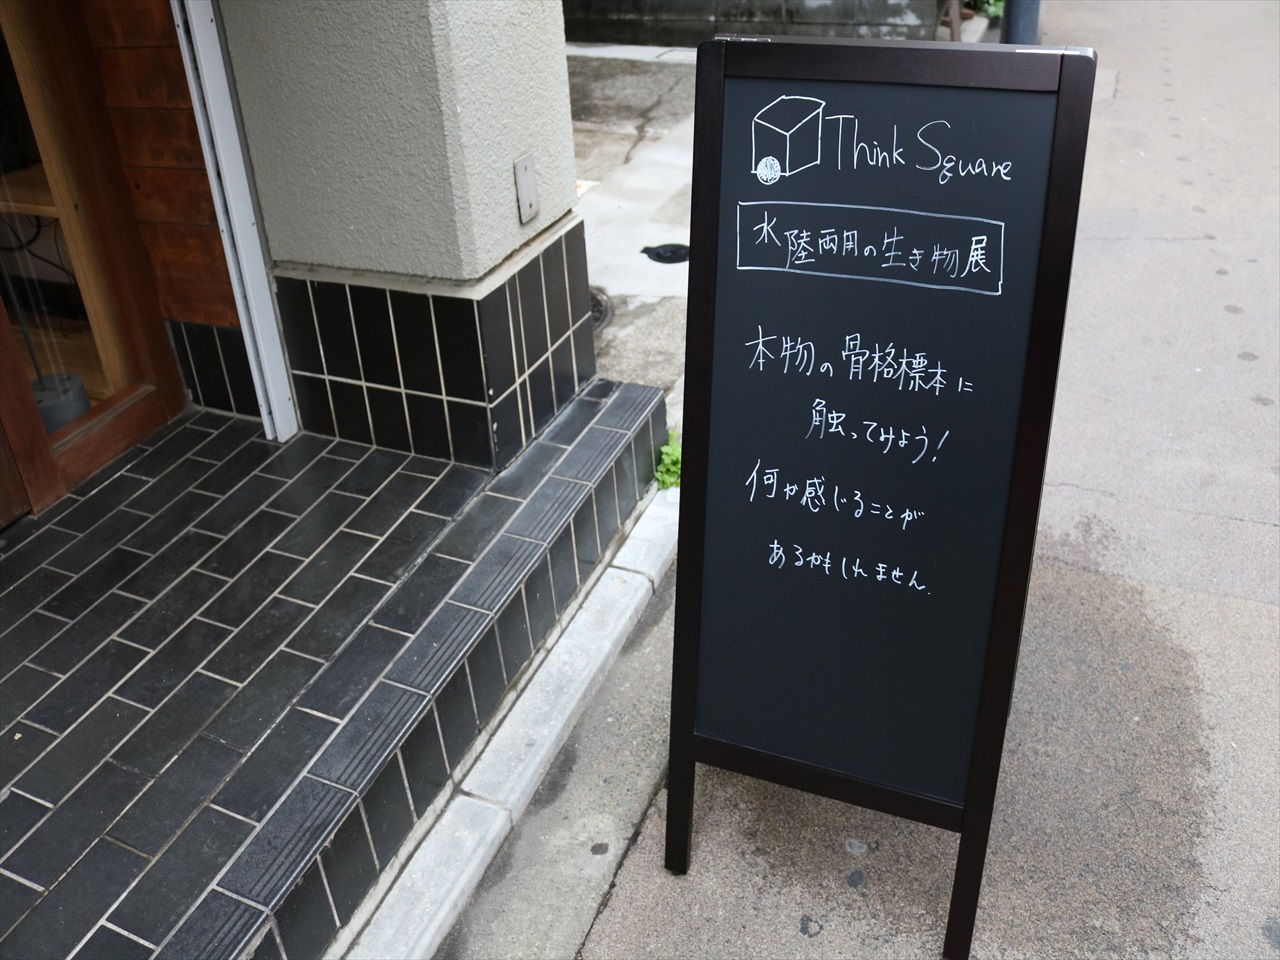 Think Square
水陸両用の生き物展
本物の骨格標本に
触ってみよう!
何か感じることが
あるかもしれません.